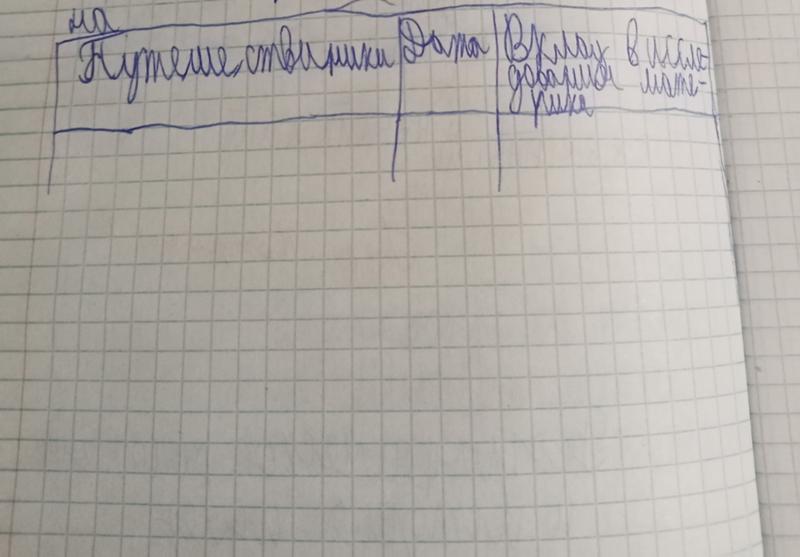 на
Путешественники Дата Вклад в иссле-
дование мате-
рика